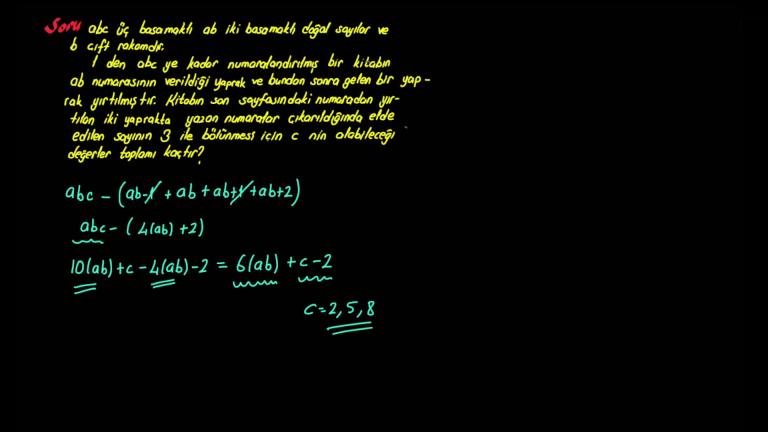 Soru abc üç basamaklı ab iki basamaklı doğal sayılar ve
b çift rakamdır.
1 den abc ye kadar numaralandırılmış bir kitabın
ab numarasının verildiği yaprak ve bundan sonra gelen bir yap-
rak yırtılmıştır. Kitabın son sayfasındaki numaradan yır-
tılan iki yaprakta yazan numaralar çıkarıldığında elde
edilen sayının 3 ile bölünmesi için c nin alabileceği
değerler toplamı kaçtır?
abc - (ab-1 + ab + ab+1 + ab+2)
abc - ( 4(ab) +2)
10(ab)+c-4(ab)-2 = 6(ab) + c-2
c=2,5,8